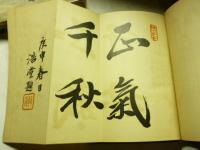 正氣
千秋
庚申春日
浩堂題